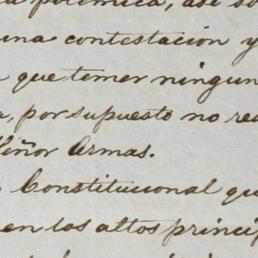 a polémica, así so
una contestacion y
que temer ningun
, por supuesto no re
Señor Armas.
Constitucional qu
en los altos princip